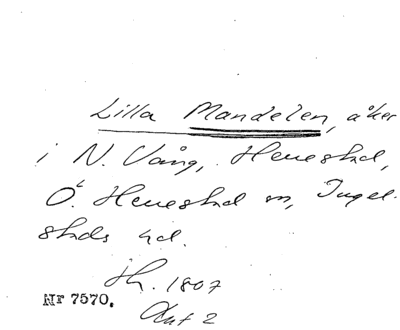 Lilla Mandelen, åker
i N. Vång, Henestad,
Ö. Henestad sn, Ingel-
stads hd.
Sh. 1807
Nr 7570. Akt 2